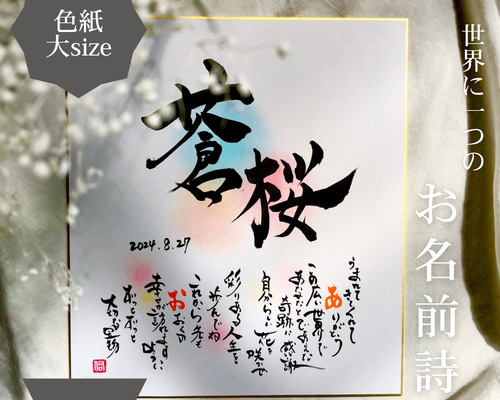 色紙
大size
世界に一つの
お名前詩
蒼桜
2024.8.27
うまれてきてくれて
ありがとう
この広い世界で
あなたにであえた
奇跡に感謝
自分らしく花を
咲かせ
彩りある人生を
歩んでね
これから先も
おおくの
幸せが訪れます
ずっとずっと
大切な宝物